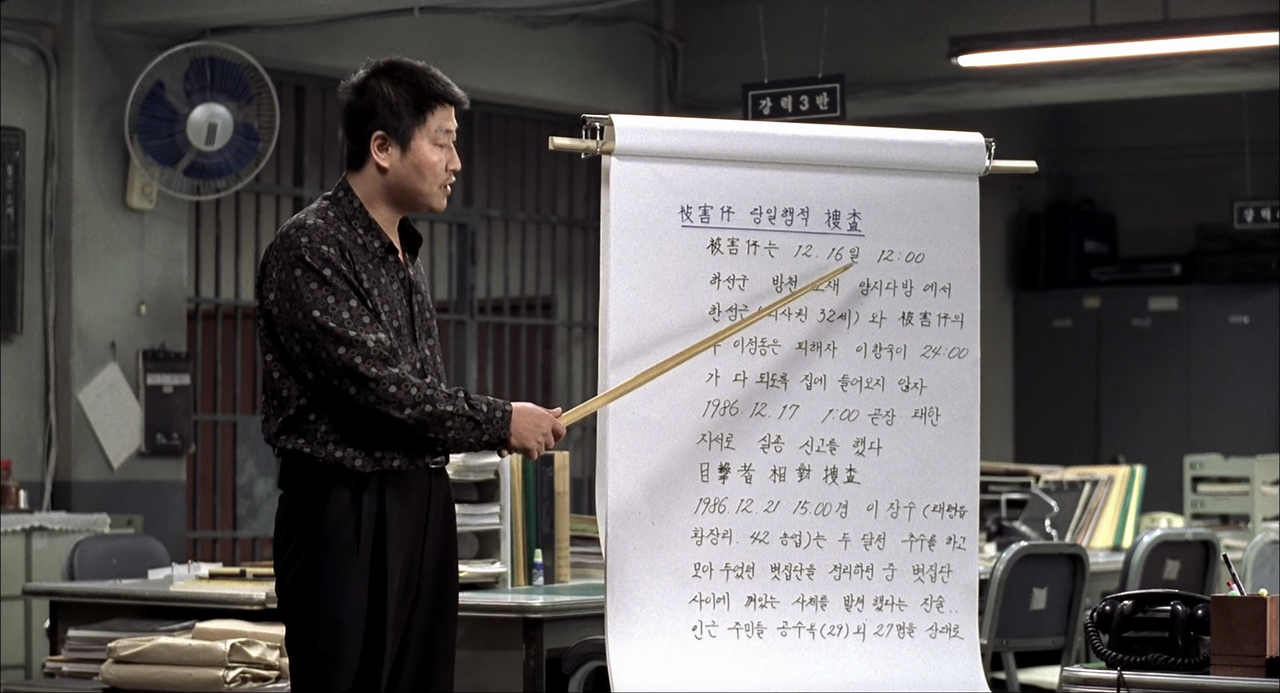 강력3반
被害仔 당일행적 捜査
被害仔는 12. 16일 12:00
화성군 방천 소재 양지다방 에서
한성근 32세) 와 被害仔의
이정동은 피해자 이향숙이 24:00
가 다 되도록 집에 들어오지 않자
1986. 12. 17 1:00 곧장 태안
지서로 실종 신고를 했다
目撃者 相対 捜査
1986. 12. 21 15.00경 이 장수 (태안읍
황장리. 42 농업)는 두 달전 추수를 하고
모아 두었던 볏집단을 정리하던 중 볏집단
사이에 껴있는 사체를 발견 했다는 진술..
인근 주민들 공수옥(29) 외 27명을 상대로
강력